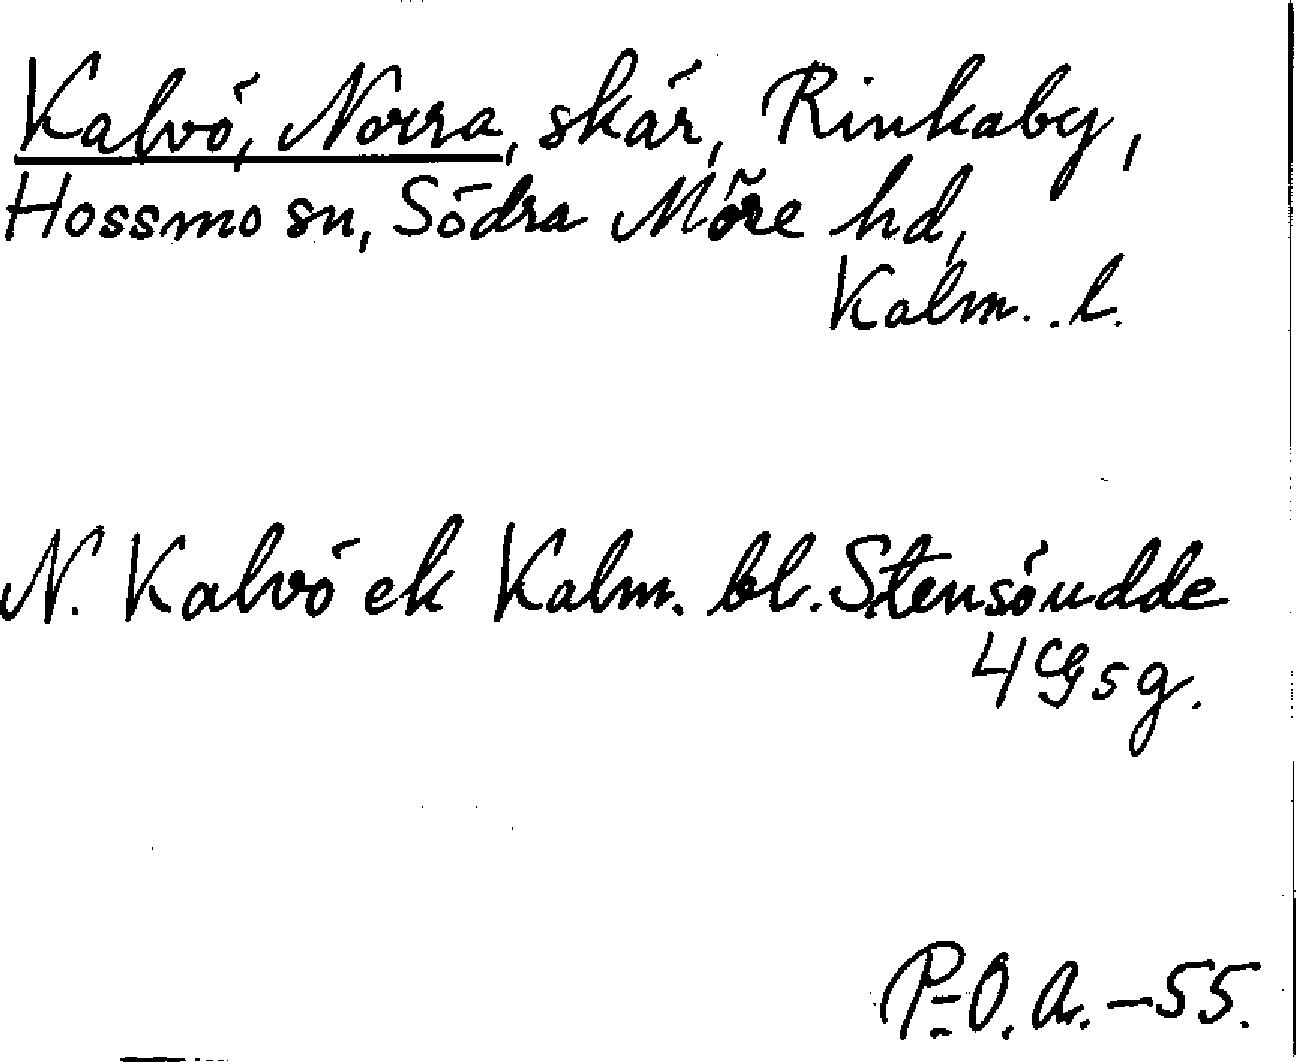 Kalvö, Norra, skär, Rinkaby,
Hossmo sn, Södra Möre hd,
Kalm. l.
N. Kalvö ek Kalm. bl. Stensöudde
4 G s g.
P-O. A. -55.